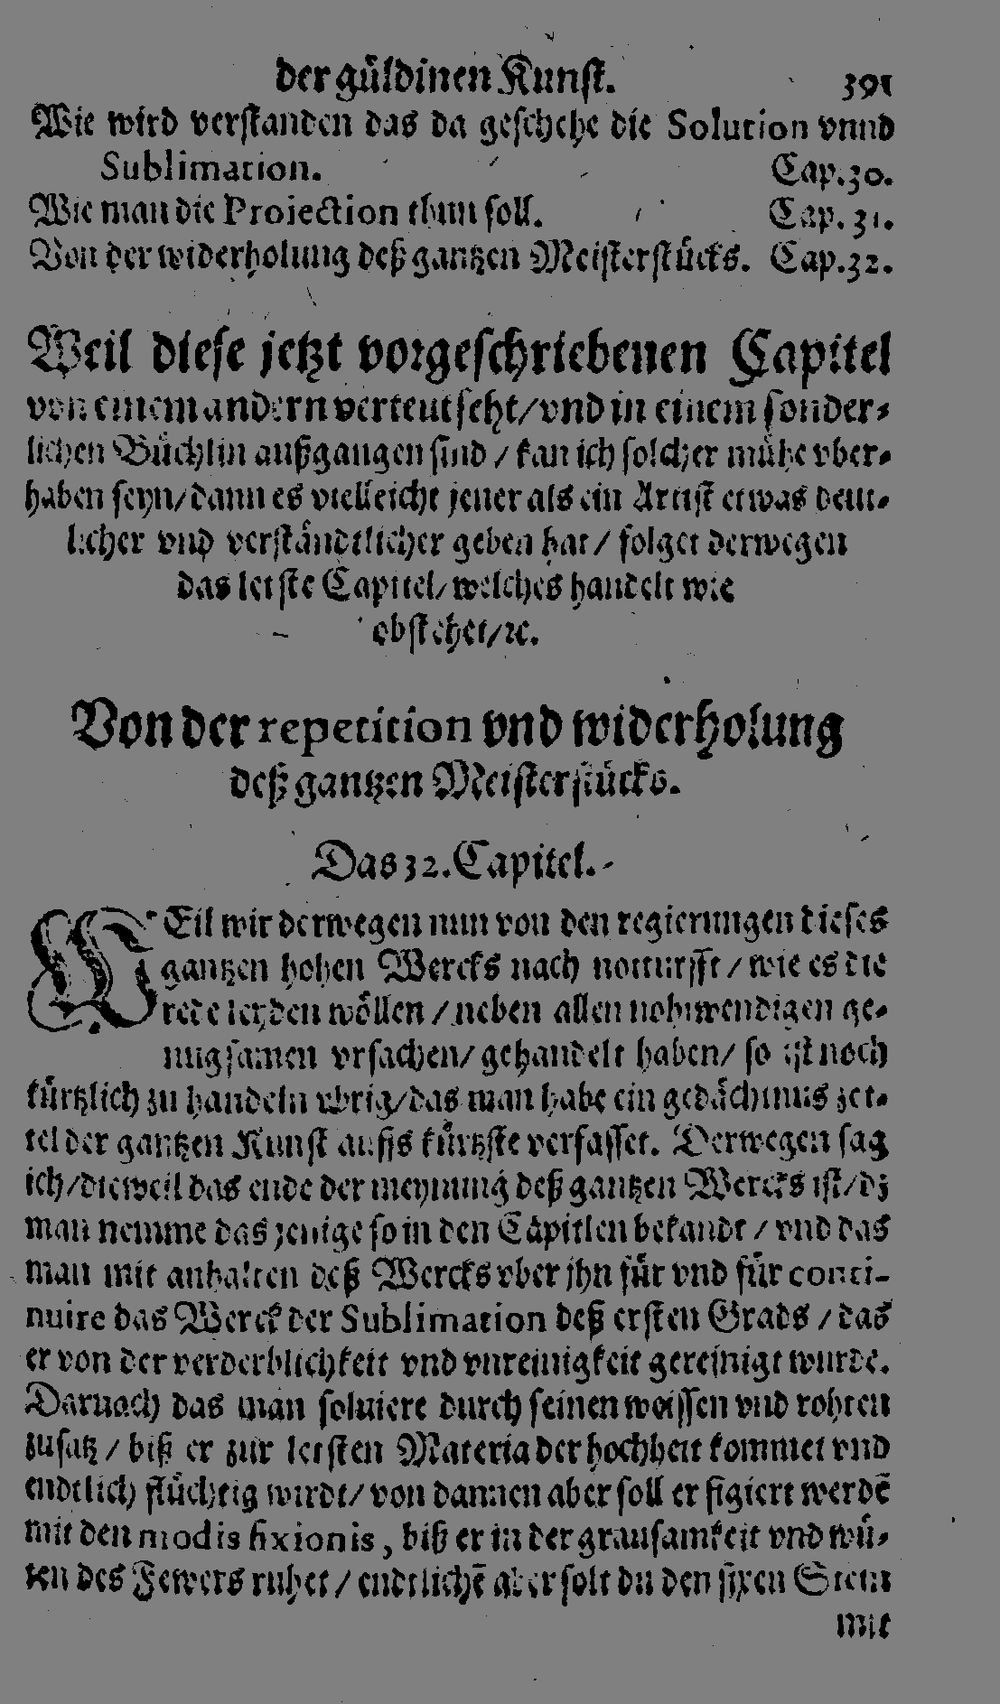 der güldinen Kunst. 391
Wie wird verstanden das da geschehe die Solution vnnd
Sublimation. Cap.30.
Wie man die Proiection thun soll. Cap. 31.
Von der widerholung deß gantzen Meisterstücks. Cap.32.
Weil diese jetzt vorgeschriebenen Capitel
von einem andern verteutscht/vnd in einem sonder-
lichen Büchlin außgangen sind / kan ich solcher mühe vber-
haben seyn/dann es vielleicht jener als ein Artist etwas deut-
licher vnd verständtlicher geben hat / folget derwegen
das letste Capitel/welches handelt wie
obstehet/ꝛc.
Von der repetition vnd widerholung
deß gantzen Meisterstücks.
Das 32. Capitel.
WEil wir derwegen nun von den regierungen dieses
gantzen hohen Wercks nach notturfft / wie es die
rede leyden wöllen / neben allen nohtwendigen ge-
nugsamen vrsachen/ gehandelt haben/ so ist noch
kürtzlich zu handeln vbrig/das man habe ein gedächtnus zet-
tel der gantzen Kunst auffs kürtzste verfasset. Derwegen sag
ich/dieweil das ende der meynung deß gantzen Wercks ist/dz
man nemme das jenige so in den Capitlen bekandt / vnd das
man mit anhalten deß Wercks vber jhn für vnd für conti-
nuire das Werck der Sublimation deß ersten Grads / das
er von der verderblichkeit vnd vnreinigkeit gereinigt wurde.
Darnach das man soluiere durch seinen weissen vnd rohten
zusatz / biß er zur letsten Materia der hochheit kommet vnd
endtlich flüchtig wirdt/ von dannen aber soll er figiert werdē
mit den modis fixionis, biß er in der grausamkeit vnd wü-
ten des Fewers ruhet / endtlichē aber solt du den fixen Stein
mit